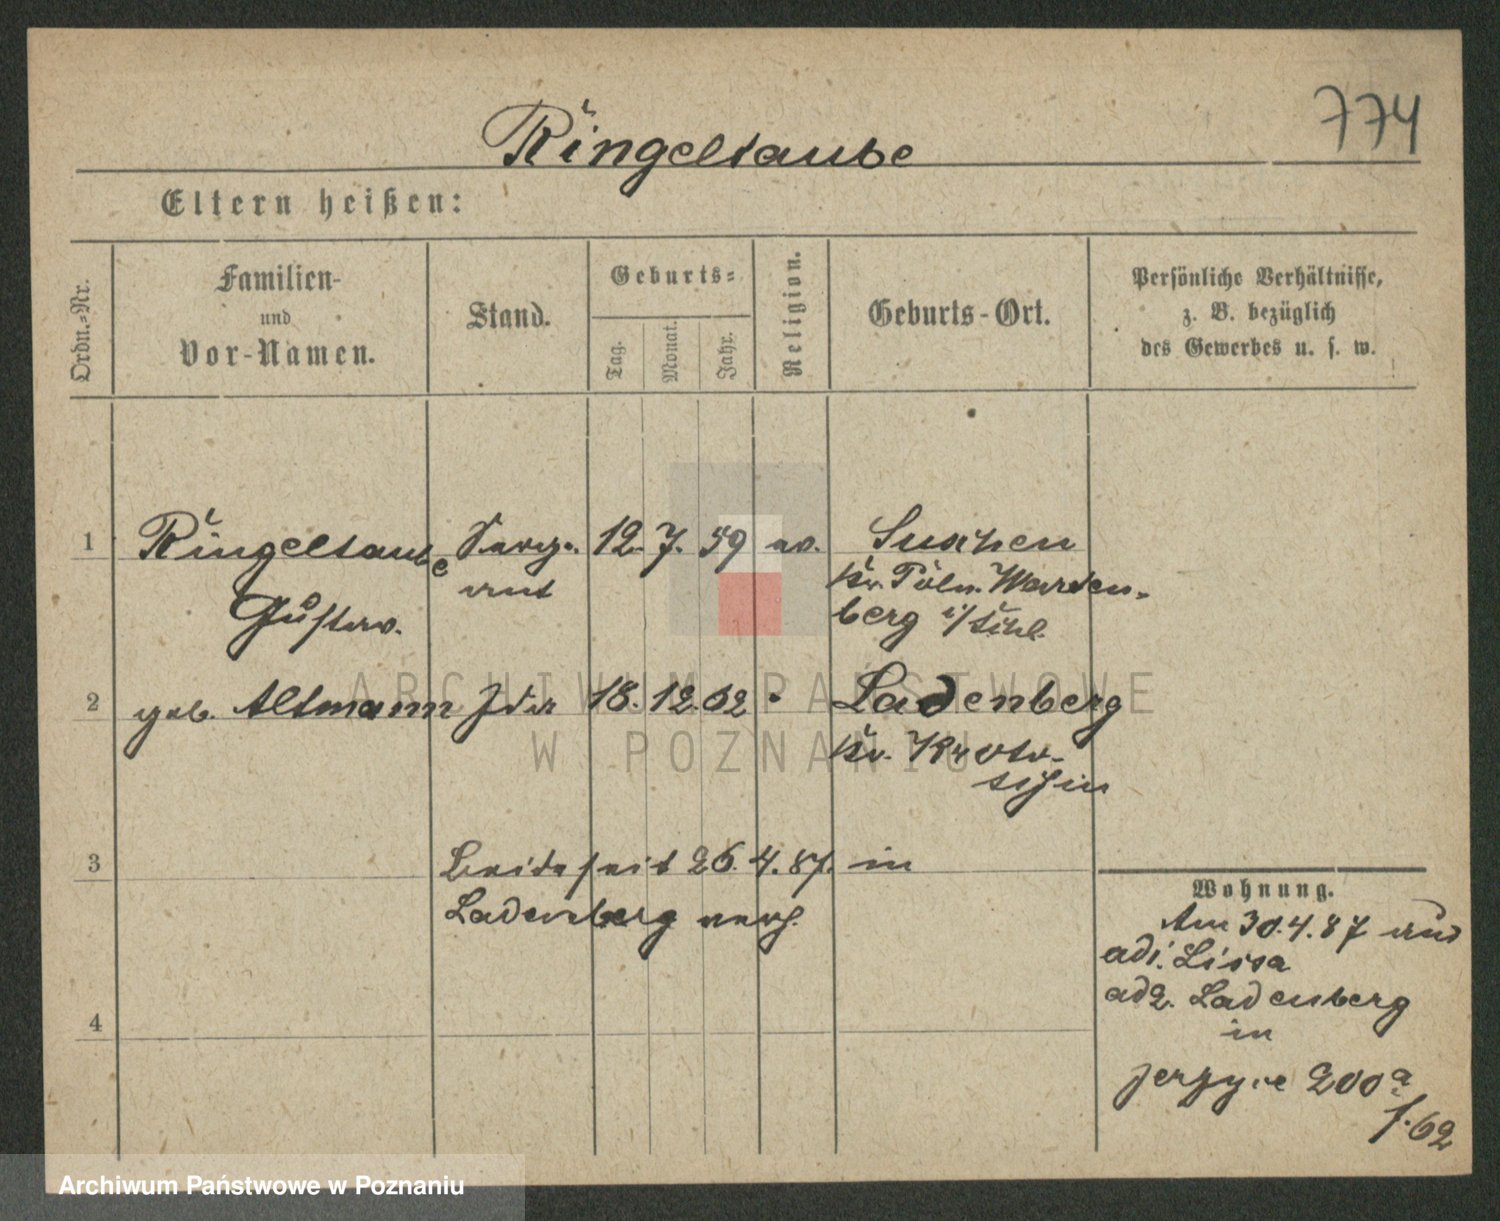 Ringeltaube
774
Eltern heißen:
Ordn.-Nr.
Familien-
und
Vor-Namen.
Stand.
Geburts-
Tag.
Monat.
Jahr.
Religion.
Geburts-Ort.
Persönliche Verhältnisse,
z. B. bezüglich
des Gewerbes u. s. w.
1 Ringeltaube Serge- 12. 7. 59 ev. Suschen
ant Kr. Poln. Warten-
Gustav. berg i/Schl.
2 geb. Altmann Ida 18. 12. 62 " Ladenberg
Kr. Kroto-
schin
3 Beide seit 26. 4. 87. in
Ladenberg verh.
4
Wohnung.
Am 30.4.87 aus
ad1. Lissa
ad2. Ladenberg
in
Jerzyce 200a
f. 62
ARCHIWUM PAŃSTWOWE
W POZNANIU
Archiwum Państwowe w Poznaniu